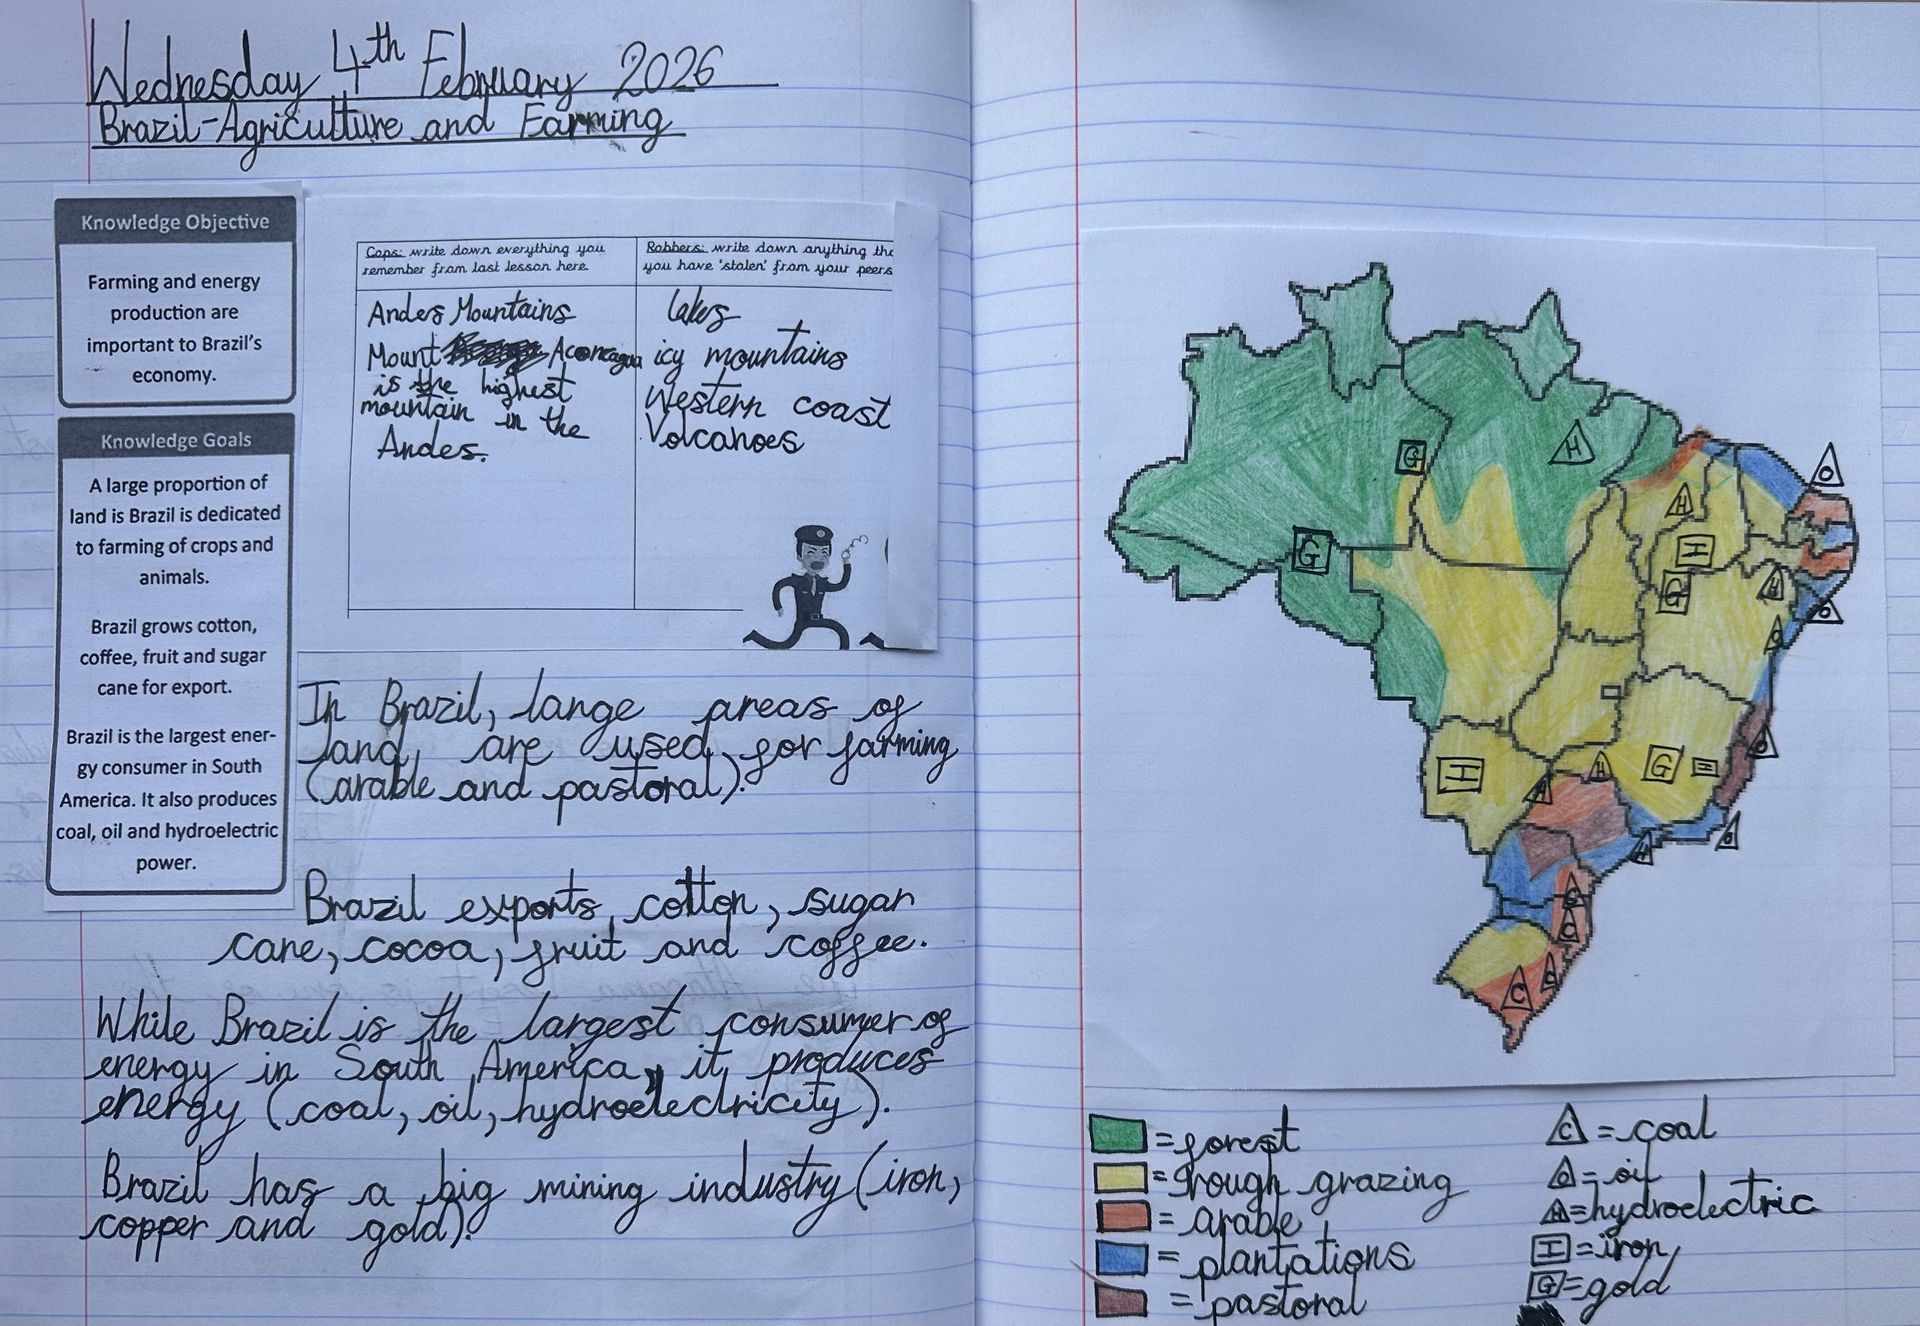 Wednesday 4th February 2026
Brazil-Agriculture and Farming
Knowledge Objective
Farming and energy
production are
important to Brazil's
economy.
Knowledge Goals
A large proportion of
land is Brazil is dedicated
to farming of crops and
animals.
Brazil grows cotton,
coffee, fruit and sugar
cane for export.
Brazil is the largest ener-
gy consumer in South
America. It also produces
coal, oil and hydroelectric
power.
Cops: write down everything you
remember from last lesson here.
Andes Mountains
Mount Aconcagua
is the highest
mountain in the
Andes.
Robbers: write down anything tha
you have 'stolen' from your peers
lakes
icy mountains
Western coast
Volcanoes
In Brazil, large areas of
land are used for farming
(arable and pastoral).
Brazil exports cotton, sugar
cane, cocoa, fruit and coffee.
While Brazil is the largest consumer of
energy in South America, it produces
energy (coal, oil, hydroelectricity).
Brazil has a big mining industry (iron,
copper and gold).
G
H
O
H
I
G
G
H
O
O
O
I
H
H
G
H
O
C
C
C
= forest
= rough grazing
= arable
= plantations
= pastoral
C = coal
O = oil
H = hydroelectric
I = iron
G = gold